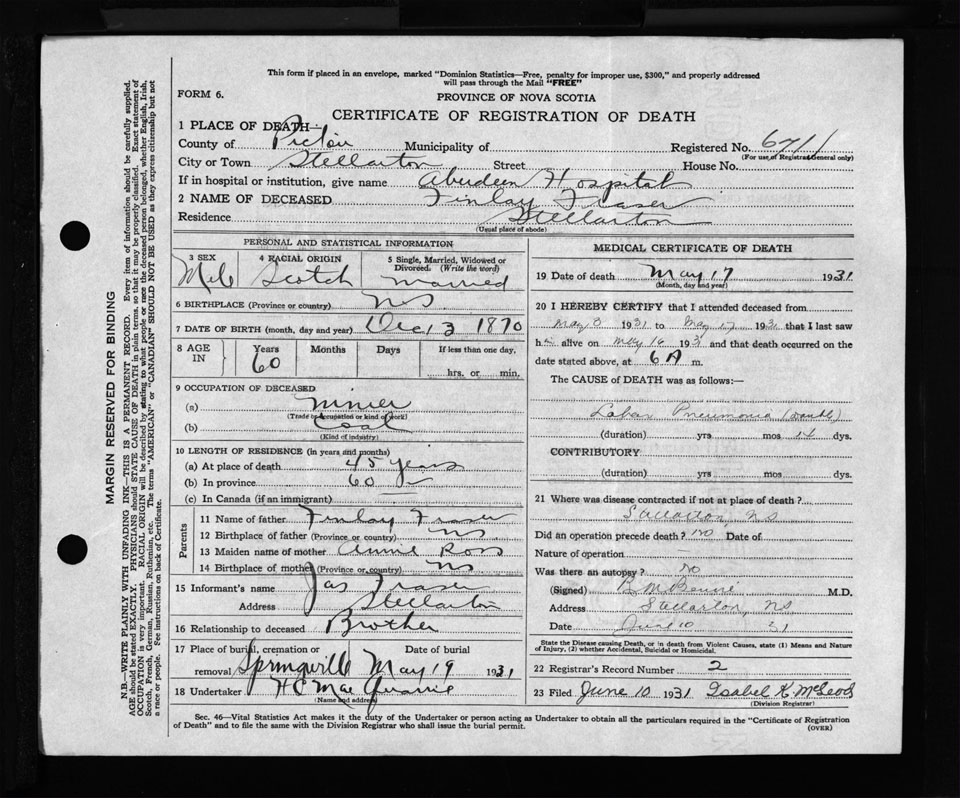 This form if placed in an envelope, marked "Dominion Statistics—Free, penalty for improper use, $300," and properly addressed
will pass through the Mail "FREE"
FORM 6.
PROVINCE OF NOVA SCOTIA
CERTIFICATE OF REGISTRATION OF DEATH
1 PLACE OF DEATH—
County of Pictou Municipality of Registered No. 6711
(For use of Registrar General only)
City or Town Stellarton Street House No.
If in hospital or institution, give name Aberdeen Hospital
2 NAME OF DECEASED Finlay Fraser
Residence Stellarton
(Usual place of abode)
PERSONAL AND STATISTICAL INFORMATION
3 SEX 4 RACIAL ORIGIN 5 Single, Married, Widowed or
Divorced. (Write the word)
Scotch Married
6 BIRTHPLACE (Province or country) NS
7 DATE OF BIRTH (month, day and year) Dec 13 1870
8 AGE IN Years Months Days If less than one day,
60
hrs. or min.
9 OCCUPATION OF DECEASED
(a) Miner
(Trade occupation or kind of work)
(b) Coal
(Kind of industry)
10 LENGTH OF RESIDENCE (in years and months)
(a) At place of death 45 years
(b) In province 60
(c) In Canada (if an immigrant)
Parents
11 Name of father Finlay Fraser
12 Birthplace of father (Province or country) NS
13 Maiden name of mother Annie Ross
14 Birthplace of mother (Province or country) NS
15 Informant's name Jas Fraser
Address Stellarton
16 Relationship to deceased Brother
17 Place of burial, cremation or Date of burial
removal Springville May 19 1931
18 Undertaker H C MacQuarrie
(Name and address)
MEDICAL CERTIFICATE OF DEATH
19 Date of death May 17 1931
(Month, day and year)
20 I HEREBY CERTIFY that I attended deceased from
May 1931 to May 17 1931 that I last saw
h alive on May 16 1931 and that death occurred on the
date stated above, at 6 A m.
The CAUSE OF DEATH was as follows:—
Lobar Pneumonia (double)
(duration) yrs mos 14 dys.
CONTRIBUTORY
(duration) yrs mos dys.
21 Where was disease contracted if not at place of death?
Stellarton, NS
Did an operation precede death? no Date of
Nature of operation —
Was there an autopsy? no
(Signed) M.D.
Address Stellarton, NS
Date June 10 31
State the Disease causing Death, or in death from Violent Causes, state (1) Means and Nature
of Injury, (2) whether Accidental, Suicidal or Homicidal.
22 Registrar's Record Number 2
23 Filed June 10 1931 Isabel K. McLeod
(Division Registrar)
Sec. 46—Vital Statistics Act makes it the duty of the Undertaker or person acting as Undertaker to obtain all the particulars required in the "Certificate of Registration
of Death" and to file the same with the Division Registrar who shall issue the burial permit.
(OVER)
MARGIN RESERVED FOR BINDING
N.B.—WRITE PLAINLY WITH UNFADING INK—THIS IS A PERMANENT RECORD. Every item of information should be carefully supplied.
AGE should be stated EXACTLY. PHYSICIANS should STATE CAUSE OF DEATH in plain terms, so that it may be properly classified. Exact statement of
OCCUPATION is very important. RACIAL ORIGIN will be described by stating to what people or race the deceased person belonged, whether English, Irish,
Scotch, French, German, Russian, Ruthenian, etc. The terms "AMERICAN" or "CANADIAN" SHOULD NOT BE USED as they express citizenship but not
a race or people. Fee instructions on back of Certificate.